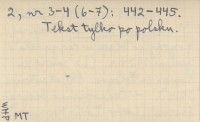 2, nr 3-4 (6-7): 442-445.
Tekst tylko po polsku.
WHP MT